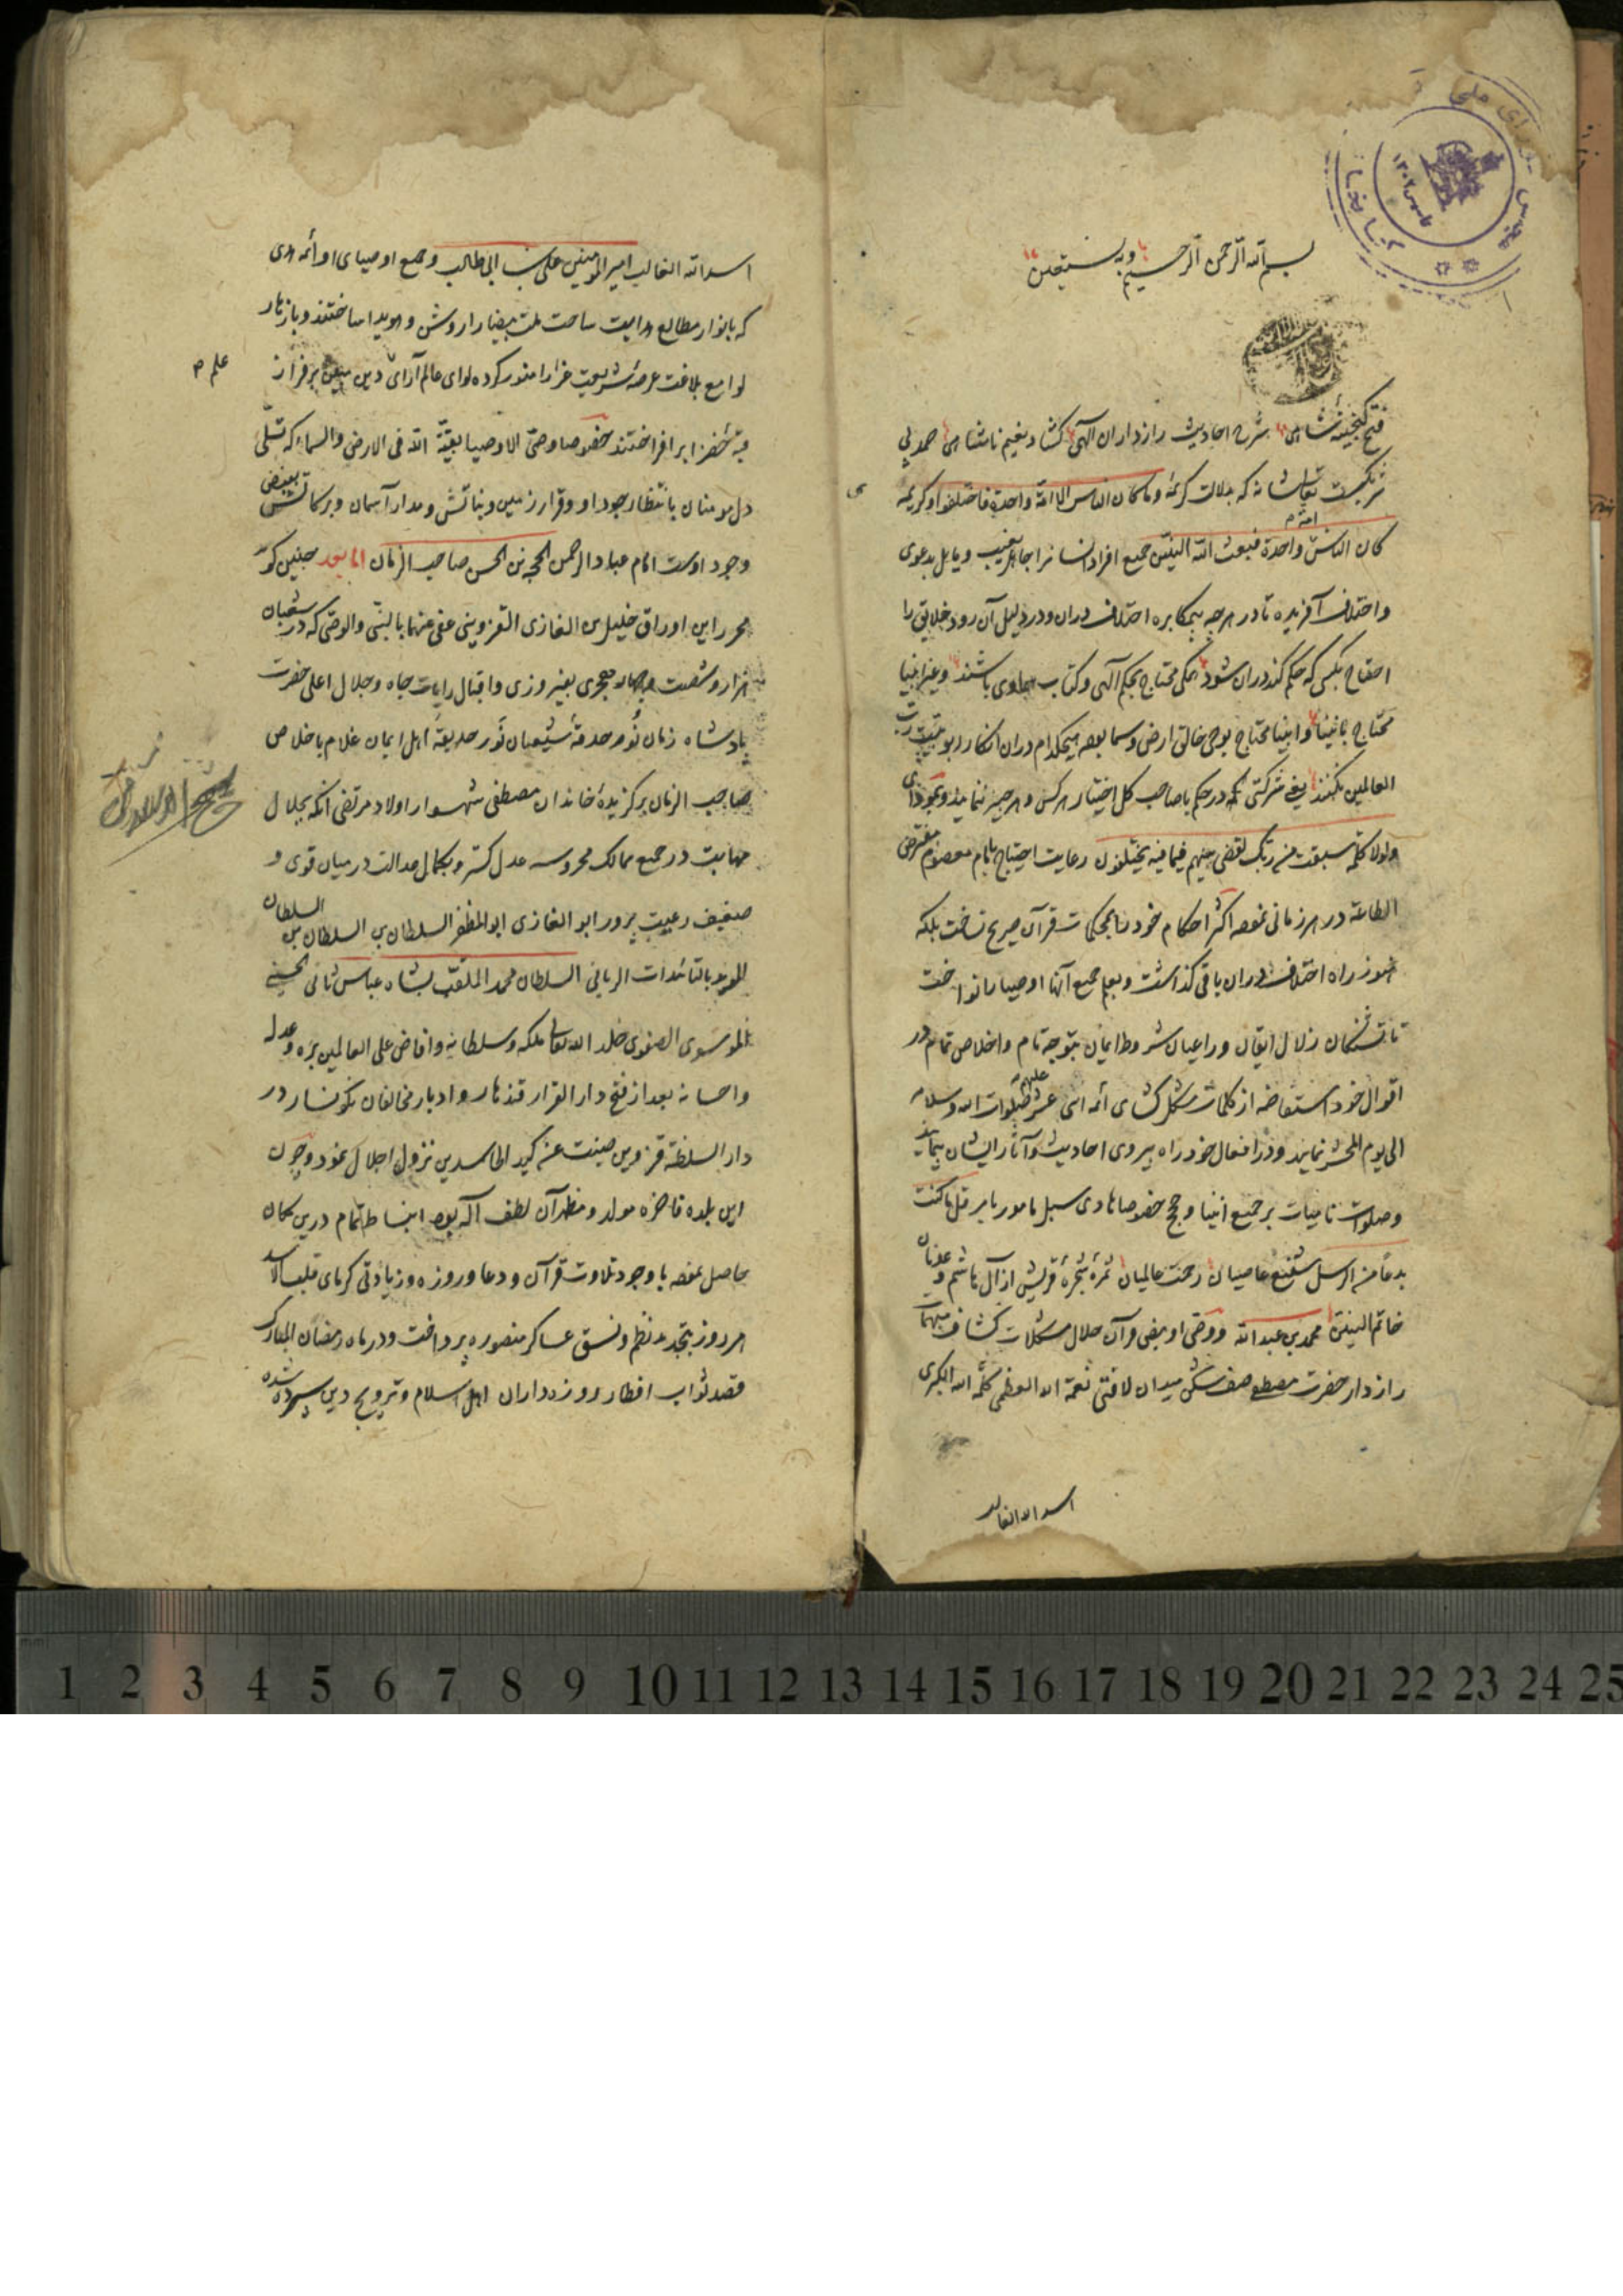 بسم الله الرحمن الرحیم وبه نستعین
فتح گنجینه شاهی بشرح احادیث رازداران الهی گشاد نعیم نامتناهی حمد بی
شریکیست تعالی شانه که بدلالت کریمهٔ وما کان الناس الا امة واحدة فاختلفوا وکریمه
کان الناس امة واحدة فبعث الله النبیین جمیع افراد انسانرا جاهل بغیب و مایل بدعوی
واختلاف آفریده تا در هر چه بیمکابره اختلاف دران ودر دلیل آن رود خلایق را
احتیاج بکسی که حکم کند دران شود همگی محتاج بحکم الهی وکتاب سماوی باشند وغیر انبیا
محتاج بانبیا وانبیا محتاج بوحی خالق ارض وسما بوده هیچکدام دران انکار ربوبیت رب
العالمین نکنند یعنی شرکتی در حکم با صاحب کل اختیار هرکس وهر چیز ننمایند
ولولا کلمة سبقت من ربک لقضی بینهم فیما فیه یختلفون رعایت احتیاج بامام معصوم مفترض
الطاعة در هر زمانی نموده اکثر احکام خود را بمحکمات قرآن صریح نساخت بلکه
هنوز راه اختلاف دران باقی گذاشت وبعلم جمیع آنها اوصیا را نواخت
تا تشنگان زلال ایقان وراعیان شروط ایمان بتوجه تام واخلاص تمام در
اقوال خود استفاضه از کلمات مشکل گشای ائمه اثنی عشر علیهم صلوات الله وسلامه
الی یوم المحشر نمایند ودر افعال خود راه پیروی احادیث وآثار ایشان پیمایند
وصلوات نامیات بر جمیع انبیا وحجج خصوصا هادی سبل مامور بامر قل ما کنت
بدعا من الرسل شفیع عاصیان رحمت عالمیان ثمرهٔ شجرهٔ قریش از آل هاشم وعدنان
خاتم النبیین محمد بن عبدالله ووصی او بنص قرآن حلال مشکلات کشاف مبهمات
رازدار حضرت مصطفی صف شکن میدان لافتی نعمة الله العظمی کلمة الله الکبری
اسد الله الغالب
اسد الله الغالب امیر المومنین علی بن ابی طالب وجمیع اوصیای او ائمه هدی
که بانوار مطالع هدایت ساحت ملت بیضا را روشن وهویدا ساختند وبازهار
لوامع بلاغت عرصهٔ شریعت غرا را منور کرده لوای عالم آرای دین مبین بر فراز
علم
قبهٔ خضرا برافراختند خصوصا وصی الاوصیا بقیة الله فی الارض والسماء که تسلی
دل مومنان بانتظار وجود او وقرار زمین ونباتش ومدار آسمان وبرکاتش بفیض
وجود اوست امام عباد الرحمن الحجة بن الحسن صاحب الزمان اما بعد چنین گوید
محرر این اوراق خلیل بن الغازی القزوینی عفی عنهما بالنبی والوصی که در شعبان
هزار وشصت وچهار هجری بفیروزی واقبال رایات جاه وجلال اعلی حضرت
پادشاه زمان نور حدقهٔ شیعیان نور حدیقهٔ اهل ایمان غلام باخلاص
صاحب الزمان برگزیدهٔ خاندان مصطفی شهسوار اولاد مرتضی آنکه بجلال
مهابت در جمیع ممالک محروسه عدل گستر وبکمال عدالت در میان قوی و
ضعیف رعیت پرور ابو الغازی ابو المظفر السلطان بن السلطان بن السلطان
الموید بالتائیدات الربانی السلطان محمد الملقب بشاه عباس ثانی الحسینی
الموسوی الصفوی خلد الله تعالی ملکه وسلطانه وافاض علی العالمین بره وعدله
واحسانه بعد از فتح دار القرار قندهار وادبار مخالفان نکونسار در
دار السلطنه قزوین صینت عن کید الحاسدین نزول اجلال نمود وچون
این بلده فاخره مولد ومظهر آن لطف اله بود انبساط تمام درین مکان
حاصل نموده باوجود تلاوت قرآن ودعا وروزه وزیادتی گرمای قلب الاسد
هر روز بتجدید نظم ونسق عساکر منصوره پرداخت ودر ماه رمضان المبارک
قصد ثواب افطار روزه داران اهل اسلام وترویج دین